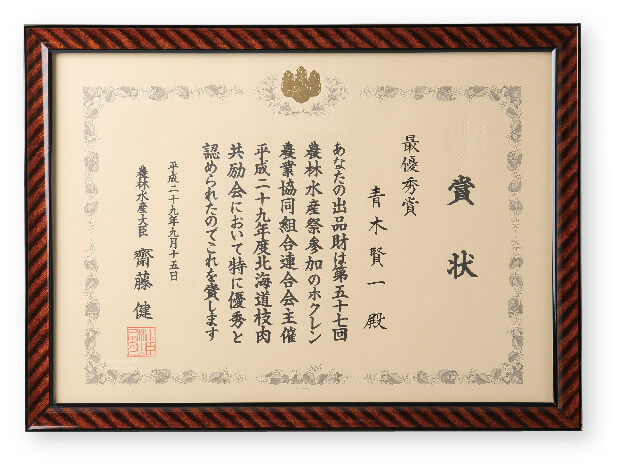 賞状
最優秀賞
青木賢一殿
あなたの出品財は第五十七回
農林水産祭参加のホクレン
農業協同組合連合会主催
平成二十九年度北海道枝肉
共励会において特に優秀と
認められたのでこれを賞します
平成二十九年九月十五日
農林水産大臣 齋藤健